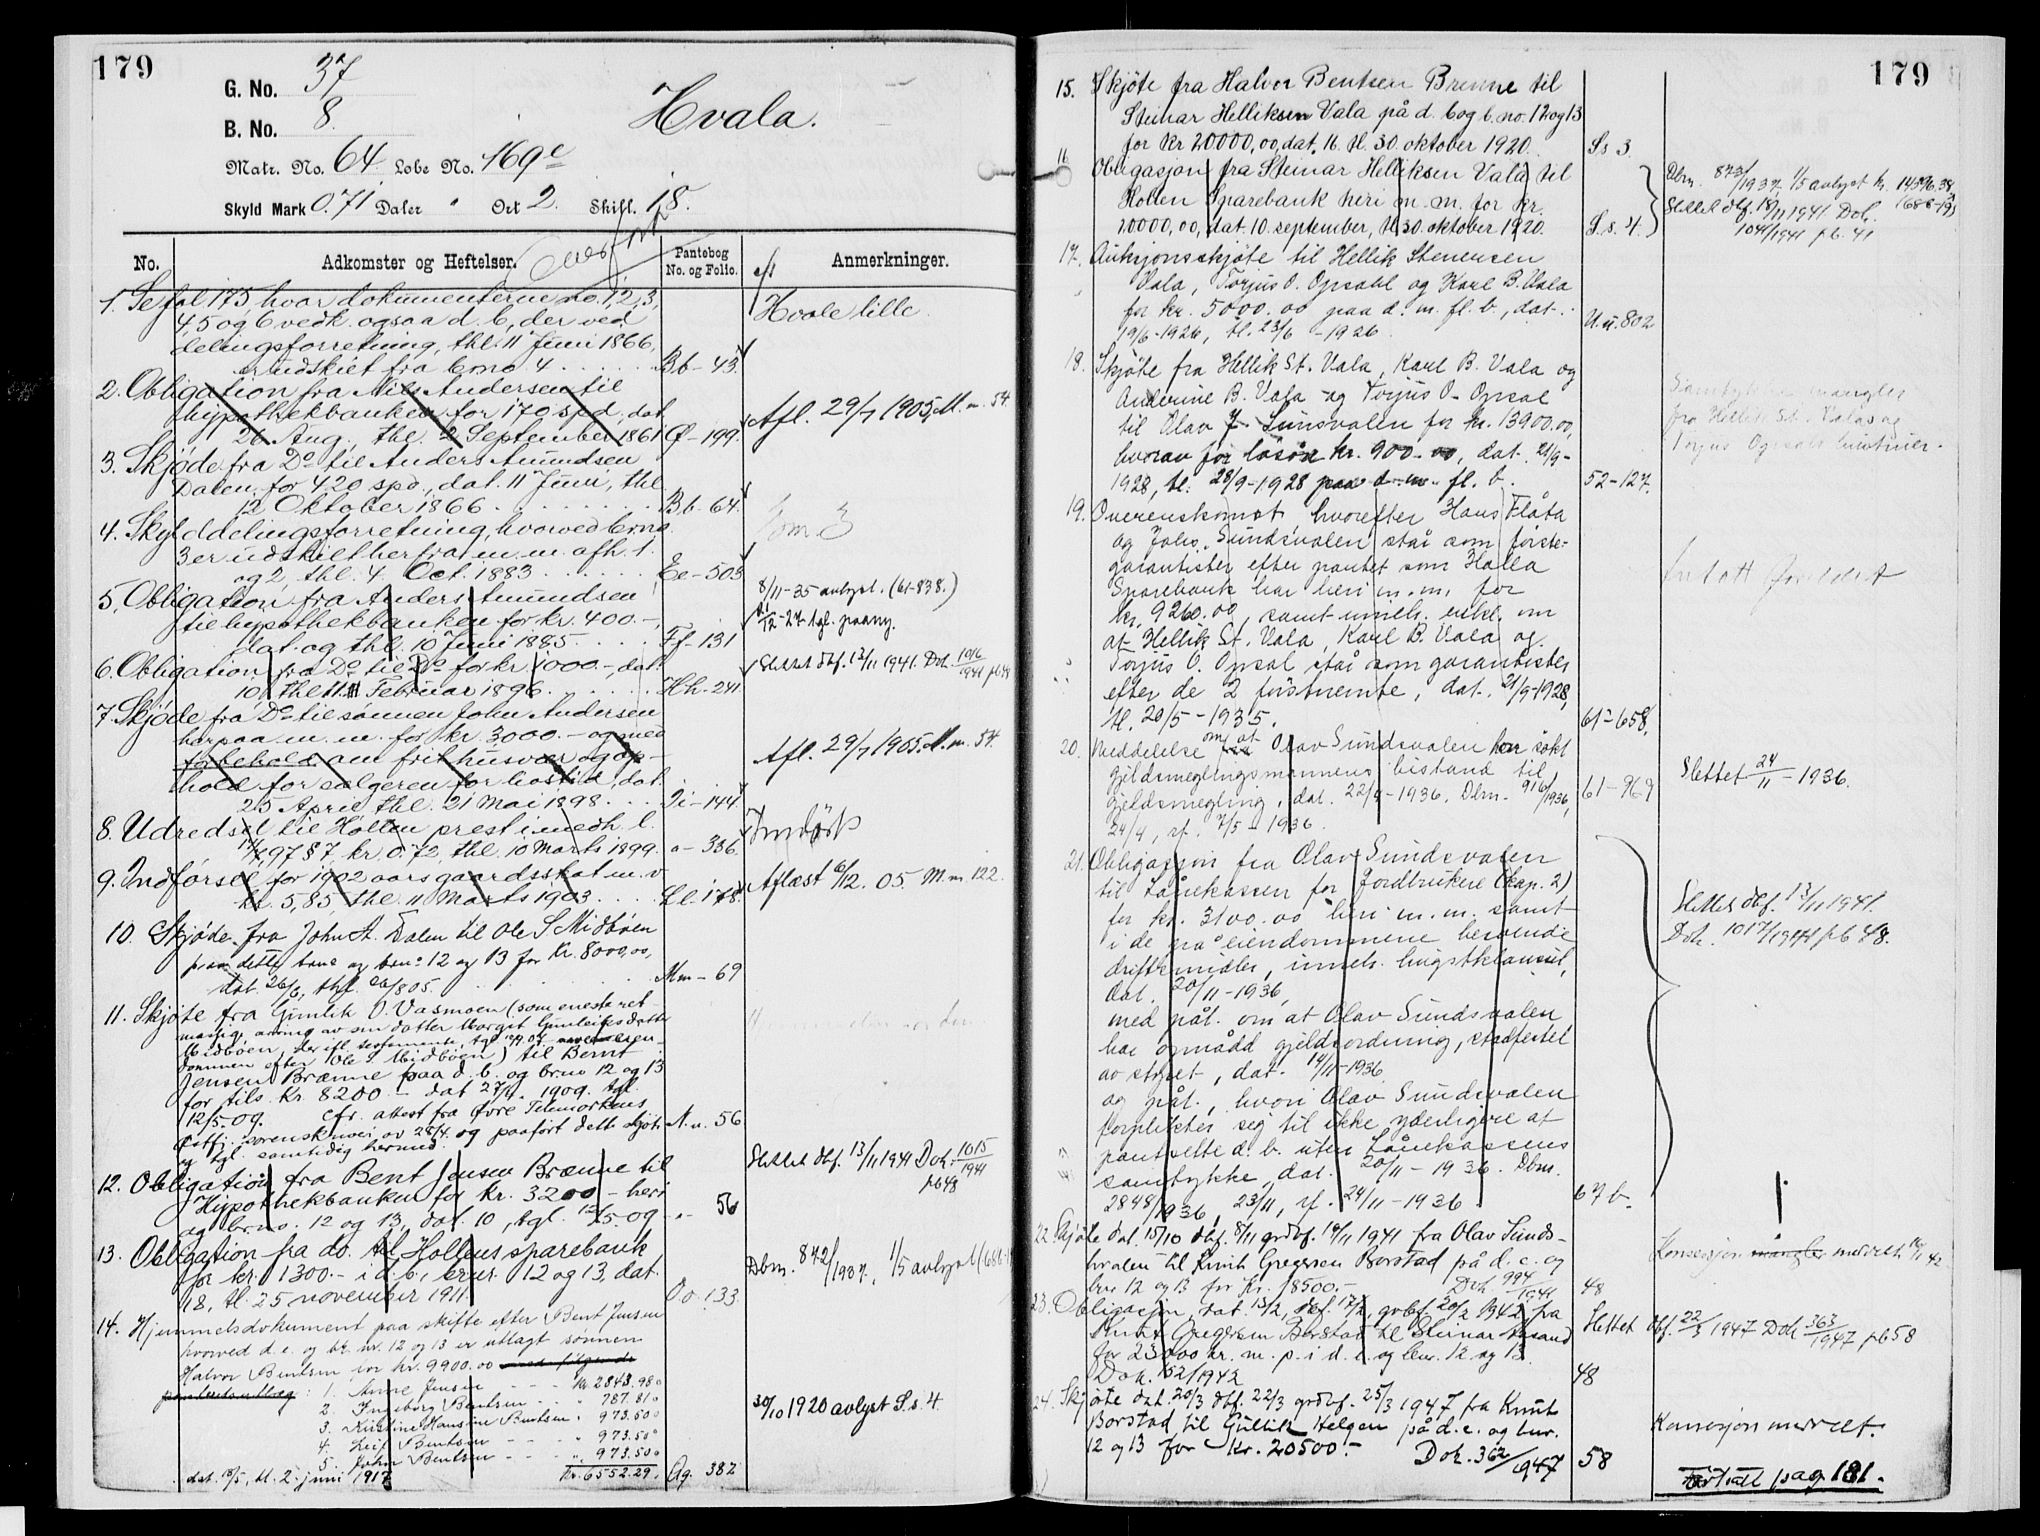 179
G. No. 37
B. No. 8.
Hvala.
Matr. No. 64 Løbe No. 169c
Skyld Mark 0.71 Daler " Ort 2. Skill. 18.
No.
Adkomster og Heftelser.
Pantebog No. og Folio.
Anmerkninger.
1. Se fol 175, hvor dokumenterne no. 1, 2, 3,
4, 5 og 6 vedk. ogsaa d. b, der ved
delingsforretning, thl. 11 Juni 1866,
er udskilt fra bno 4 Bb-43.
Hvale lille.
2. Obligation fra Nils Andersen til
hypothekbanken for 170 spd, dat.
26 Aug., thl. 2 September 1861 Q-199.
Afl. 29/7 1905, M. n. 54.
3. Skjøde fra Do til Anders Amundsen
Dalen for 420 spd., dat. 11 Juni, thl.
12 Oktober 1866. Bb. 64.
4. Skylddelingsforretning, hvorved bno
3 er udskilt herfra m. m. afh. 1.
og 2, thl. 4. Oct. 1883 Ee-503
5. Obligation fra Anders Amundsen
til hypothekbanken for kr. 400.-,
dat. og thl. 10 Juni 1885 Ff-131
8/11-35 avlyst. (61-838.)
6. Obligation fra Do til Do for kr 1000.-, dat.
10, thl. 11 Februar 1896. Hh-241.
Slettet dbf. 13/11 1941. Dok. 1016/1941 pb 48
7. Skjøde fra Do til sønnen John Andersen
her paa m. m. for kr 3000.- og med
forbehold om frit husvær og op-
hold for sælgeren for livstid, dat.
25 April, thl. 21 Mai 1898. Ii-144.
Afl. 29/7 1905. M. n. 54.
8. Udredsel til Holten prest i medh. l.
14/7 97 § 7, kr 0.72, thl. 10 Marts 1899. "- 336.
9. Indførsel for 1902 aars gaardsskat m. v
kr. 5,85, thl. 11 Marts 1903 Ll. 178.
Aflæst 6/12. 05. M. n. 122.
10. Skjøde fra John A. Dalen til Ole S. Midbøen
paa dette bno og bno 12 og 13 for Kr. 8000,00,
dat. 26/6, thl. 26/8 05. Mm-69
11. Skjøte fra Gunlik O. Vasmoen (som eneste ret-
mæssig arving av sin datter Margit Gunleiksdatter
Midbøen, der ifl. testamente, tgl
dommen efter Ole S. Midbøen) til Bernt
Jensen Brænne paa d. b. og br.no 12 og 13
for tils. Kr. 8200.- dat 27/4. 1909. tgl.
12/5. 09. Cfr. attest fra Øvre Telemarkens
østfj. sorenskriveri av 28/4. og paaført dette skjøte
og tgl. samtidig hermed. N. n. 56
12. Obligation fra Bent Jensen Brænne til
Hypothekbanken for kr. 3200 - heri
og brno. 12 og 13, dat. 10, tgl. 12/5-09 -"- 56
Slettet dbf. 13/11 1941 Dok. 1015/1941
pb 48
13. Obligation fra do. til Hollens sparebank
for kr. 1300.- i d. b., brnr. 12 og 13, dat.
18, tl. 25 november 1911. Oo. 133.
Dbm. 872/1937, 1/5 avlyst
14. Hjemmelsdokument paa skifte efter Bent Jensen
hvorved d. e. og br. nr. 12 og 13 er utlagt sønnen
Halvor Bentsen for kr. 9900.00 med følgende
panteutlæg: 1. Anne Jensen Kr. 2843.98
2. Ingeborg Bentsen " 787.81
3. Kristine Hansine Bentsen " 973.50
4. Leif Bentsen " 973.50
5. John Bentsen " 973.50
dat. 18/5, tl. 2. juni 1917 Kr. 6552.29. Qq. 382
30/10 1920 avlyst S.s. 4.
179
15. Skjøte fra Halvor Bentsen Brenne til
Steinar Helliksen Vala på d. b og b. no. 12 og 13
for kr 20000,00, dat. 16. tl. 30. oktober 1920. Ss 3.
16. Obligasjon fra Steinar Helliksen Vala til
Hollen Sparebank heri m. m. for kr.
20000,00, dat. 10. september, tl. 30. oktober 1920. S.s. 4.
Dbm. 873/1937. 1/5 avlyst kr. 14596.38
Slettet dbf. 18/11 1941 Dok.
1041/1941 pb. 41
17. Auksjonsskjøte til Hellik Stenersen
Vala, Torjus O. Opsahl og Karl B. Vala
for kr. 5000.00 paa d. m. fl. b., dat.
19/6-1926, tl. 23/6-1926. U.u. 802
18. Skjøte fra Hellik St. Vala, Karl B. Vala og
Andrine B. Vala og Torjus O. Opsal
til Olav J. Sunsvalen for kr. 13900.00,
hvorav for løsøre kr. 900.00, dat. 21/9-
1928, tl. 28/9-1928 paa d. m. fl. b. 52-127.
Samtykke mangler
fra Hellik St. Valas og
Torjus Opsals hustruer.
19. Overenskomst hvorefter Hans Flåta
og Johs. Sundsvalen står som første-
garantister efter pantet som Holla
Sparebank har heri m. m. for
kr. 9260.00, samt innels. erkl. om
at Hellik St. Vala, Karl B. Vala og
Torjus O. Opsal står som garantister
efter de 2 førstnevnte, dat. 21/9-1928,
tl. 20/5-1935. 61-658.
20. Meddelelse om at Olav Sundsvalen har søkt
gjeldsmeglingsmannens bistand til
gjeldsmegling, dat. 22/4-1936. Dbm. 916/1936,
24/4, rf. 7/5-1936. 61-969
Slettet 24/11-1936.
21. Obligasjon fra Olav Sundsvalen
til Lånekassen for Jordbrukere (kap. 2)
for kr. 3100.00 heri m. m. samt
i de på eiendommene beroende
driftsmidler, innels. hugstklausul,
dat. 20/11-1936,
med påt. om at Olav Sundsvalen
har opnådd gjeldsordning, stadfestet
av styret, dat. 14/11-1936
og påt., hvori Olav Sundsvalen
forplikter sig til ikke yderligere at
pantsette d. b. uten Lånekassens
samtykke, dat. 20/11-1936. Dbm.
2848/1936, 23/11, rf. 24/11-1936 67 b.
Slettet dbf. 13/11 1941.
Dok. 1017/1941 pb 48.
22. Skjøte dat 15/10 dbf. 8/11 grdbf. 14/11 1941 fra Olav Sunds-
hvalen til Knut Gregersen Borstad på d. e. og
bnr 12 og 13 for Kr. 18500.- Dok 994/1941 48
Konsesjon mangler
23. Obligasjon, dat 13/2, dbf. 17/2, grdbf. 20/2 1942 fra
Knut Gregersen Borstad til Steinar
for 23000 kr. m. p. i d. e. og bnr. 12 og 13.
Dok. 152/1942 48
Slettet dbf. 22/3 1947 Dok 363/1947 pb 58
24. Skjøte dat. 20/3 dbf. 22/3 grdbf. 25/3 1947 fra Knut
Borstad til Gullik Helgen på d. e. og bnr.
12 og 13 for Kr. 20500.- Dok. 362/1947 58
Fortsatt pag 181.